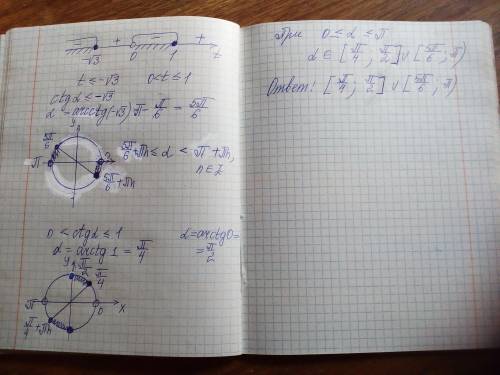 + + t
-√3 0 1
t ≤ -√3 0 < t ≤ 1
ctg α ≤ -√3
α = arcctg(-√3) π - π/6 = 5π/6
y
5π/6
π
5π/6 + πn
5π/6 + πn ≤ α < π + πn,
n ∈ Z
0 < ctg α ≤ 1
α = arcctg 1 = π/4
α = arcctg 0 =
= π/2
y π/2 π/4
π 0 x
π/4 + πn
При 0 ≤ α ≤ π
α ∈ [π/4; π/2] ∪ [5π/6; π)
Ответ: [π/4; π/2) ∪ [5π/6; π)